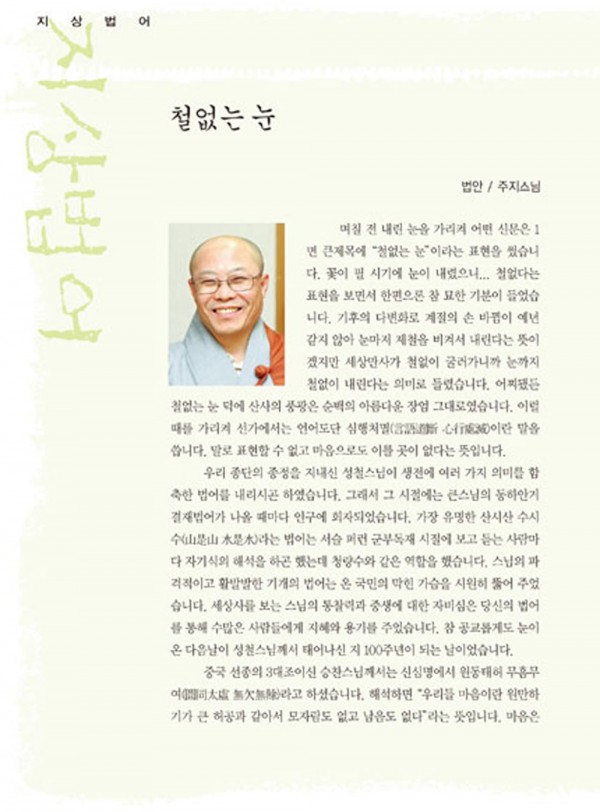 지 상 법 어
지상법어
철없는 눈
법안 / 주지스님
며칠 전 내린 눈을 가리켜 어떤 신문은 1
면 큰제목에 “철없는 눈”이라는 표현을 썼습니
다. 꽃이 필 시기에 눈이 내렸으니... 철없다는
표현을 보면서 한편으론 참 묘한 기분이 들었습
니다. 기후의 다변화로 계절의 손 바뀜이 예년
같지 않아 눈마저 제철을 비켜서 내린다는 뜻이
겠지만 세상만사가 철없이 굴러가니까 눈까지
철없이 내린다는 의미로 들렸습니다. 어찌됐든
철없는 눈 덕에 산사의 풍광은 순백의 아름다운 장엄 그대로였습니다. 이럴
때를 가리켜 선가에서는 언어도단 심행처멸(言語道斷 心行處滅)이란 말을
씁니다. 말로 표현할 수 없고 마음으로도 이를 곳이 없다는 뜻입니다.
우리 종단의 종정을 지내신 성철스님이 생전에 여러 가지 의미를 함
축한 법어를 내리시곤 하였습니다. 그래서 그 시절에는 큰스님의 동하안거
결재법어가 나올 때마다 인구에 회자되었습니다. 가장 유명한 산시산 수시
수(山是山 水是水)라는 법어는 서슬 퍼런 군부독재 시절에 보고 듣는 사람마
다 자기식의 해석을 하곤 했는데 청량수와 같은 역할을 했습니다. 스님의 파
격적이고 활발발한 기개의 법어는 온 국민의 막힌 가슴을 시원히 뚫어 주었
습니다. 세상사를 보는 스님의 통찰력과 중생에 대한 자비심은 당신의 법어
를 통해 수많은 사람들에게 지혜와 용기를 주었습니다. 참 공교롭게도 눈이
온 다음날이 성철스님께서 태어나신 지 100주년이 되는 날이었습니다.
중국 선종의 3대조이신 승찬스님께서는 신심명에서 원동태허 무흠무
여(圓同太虛 無欠無餘)라고 하셨습니다. 해석하면 “우리들 마음이란 원만하
기가 큰 허공과 같아서 모자람도 없고 남음도 없다”라는 뜻입니다. 마음은